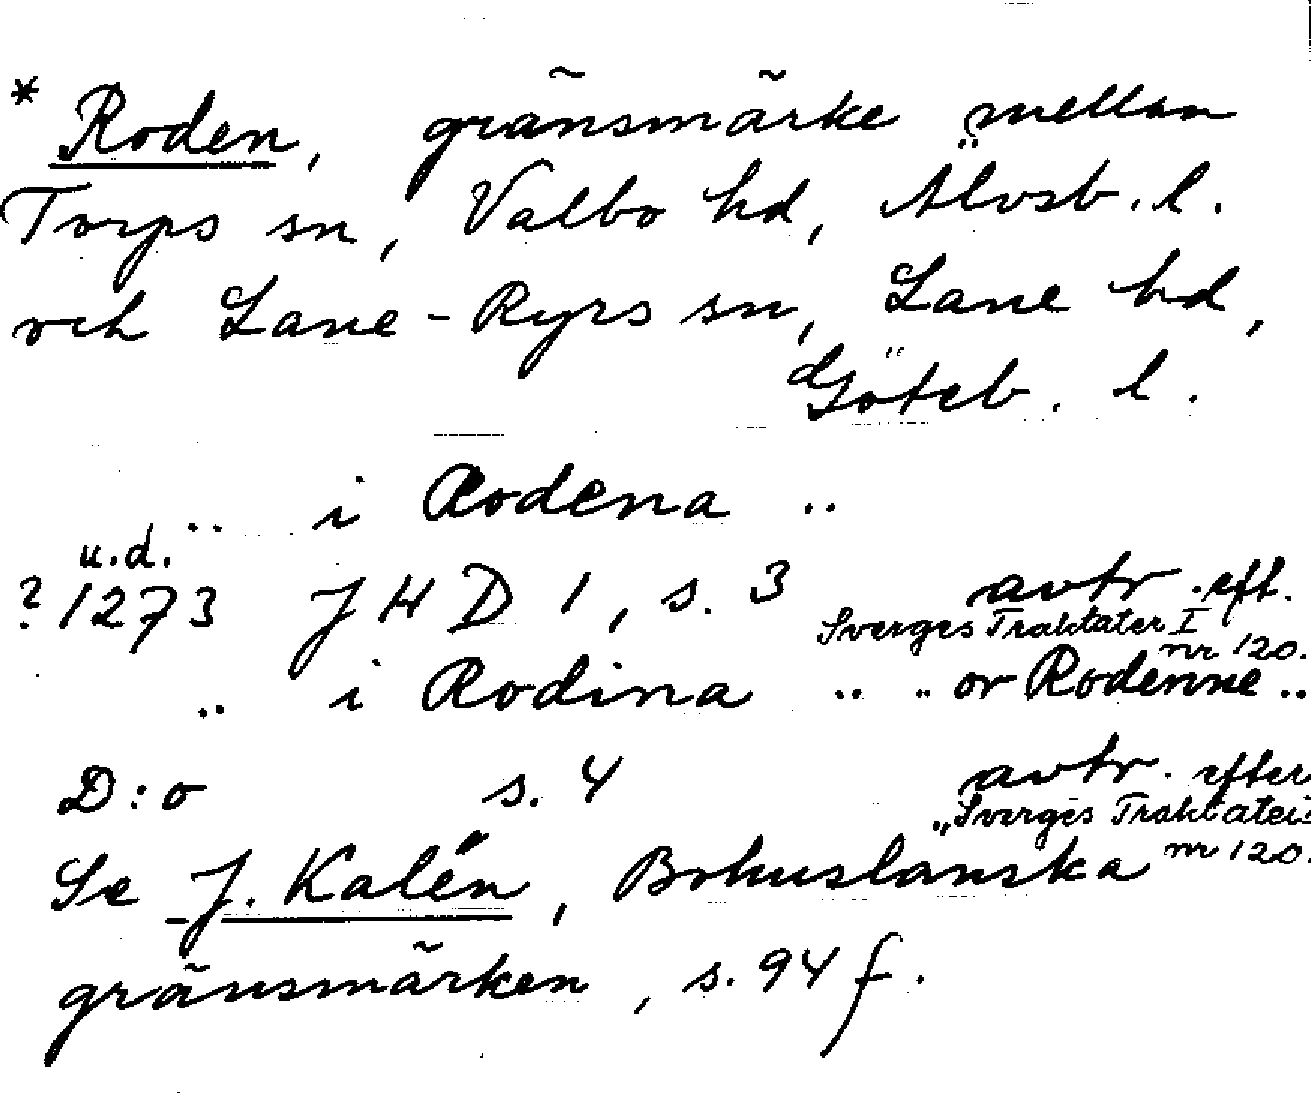 * Roden, gränsmärke mellan
Torps sn, Valbo hd, Älvsb. l.
och Lane-Ryrs sn, Lane hd,
Göteb. l.
.. i Rodena ..
u.d.
? 1273 JHD 1, s. 3 avtr. eft.
Sverges Traktater I
nr 120.
.. i Rodina .. .. or Rodenne ..
D:o s. 4 avtr. efter
"Sverges Traktater
nr 120.
Se J. Kalén, Bohuslanska
gränsmärken, s. 94 f.